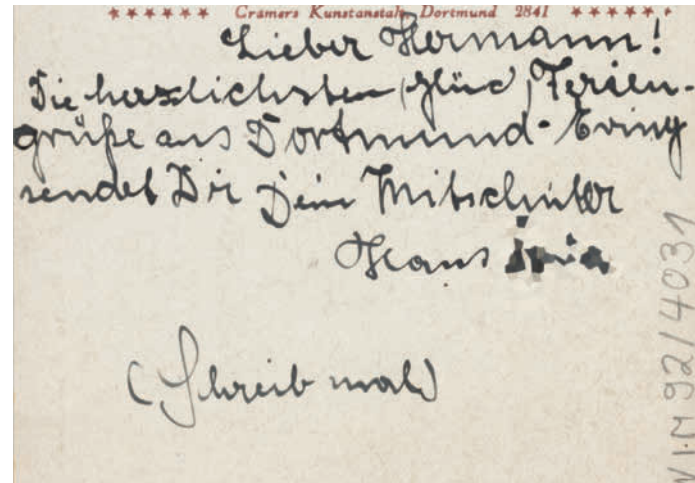 ****** Cramers Kunstanstalt, Dortmund 2841 ******
Lieber Hermann!
Die herzlichsten (Glück) Ferien-
grüße aus Dortmund-Eving
sendet Dir Dein Mitschüler
Hans
(Schreib mal)
WIM 92/4031